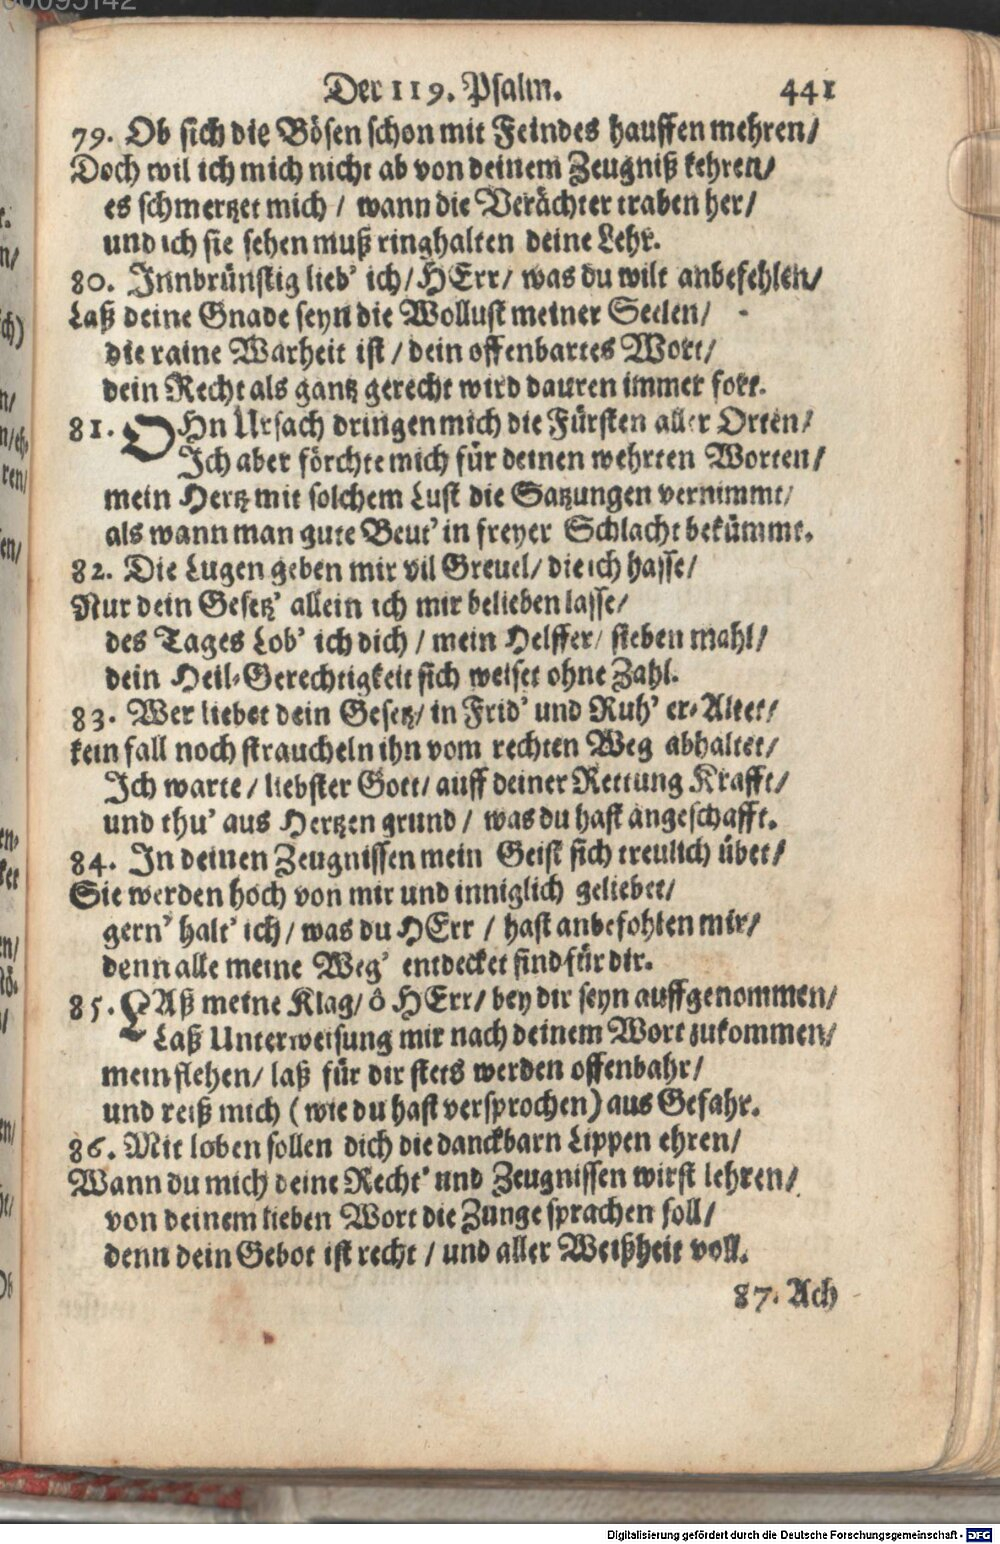 Der 119. Psalm. 441
79. Ob sich die Bösen schon mit Feindes hauffen mehren/
Doch wil ich mich nicht ab von deinem Zeugniß kehren/
es schmertzet mich / wann die Verächter traben her/
und ich sie sehen muß ringhalten deine Lehr.
80. Innbrünstig lieb' ich/ HErr/ was du wilt anbefehlen/
Laß deine Gnade seyn die Wollust meiner Seelen/
die raine Warheit ist / dein offenbartes Wort/
dein Recht als gantz gerecht wird dauren immer fort.
81. OHn Ursach dringen mich die Fürsten aller Orten/
Ich aber förchte mich für deinen wehrten Worten/
mein Hertz mit solchem Lust die Satzungen vernimmt/
als wann man gute Beut' in freyer Schlacht bekümmt.
82. Die Lugen geben mir vil Greuel/ die ich hasse/
Nur dein Gesetz' allein ich mir belieben lasse/
des Tages Lob' ich dich / mein Helffer/ sieben mahl/
dein Heil-Gerechtigkeit sich weiset ohne Zahl.
83. Wer liebet dein Gesetz/ in Frid' und Ruh' er-Altet/
kein fall noch straucheln ihn vom rechten Weg abhaltet/
Ich warte / liebster Gott/ auff deiner Rettung Krafft/
und thu' aus Hertzen grund / was du hast angeschafft.
84. In deinen Zeugnissen mein Geist sich treulich übet/
Sie werden hoch von mir und inniglich geliebet/
gern' halt' ich / was du HErr / hast anbefohlen mir/
denn alle meine Weg' entdecket sind für dir.
85. LAß meine Klag/ ô HErr/ bey dir seyn auffgenommen/
Laß Unterweisung mir nach deinem Wort zukommen/
mein flehen/ laß für dir stets werden offenbahr/
und reiß mich (wie du hast versprochen) aus Gefahr.
86. Mit loben sollen dich die danckbarn Lippen ehren/
Wann du mich deine Recht' und Zeugnissen wirst lehren/
von deinem lieben Wort die Zunge sprachen soll/
denn dein Gebot ist recht / und aller Weißheit voll.
87. Ach
Digitalisierung gefördert durch die Deutsche Forschungsgemeinschaft - DFG